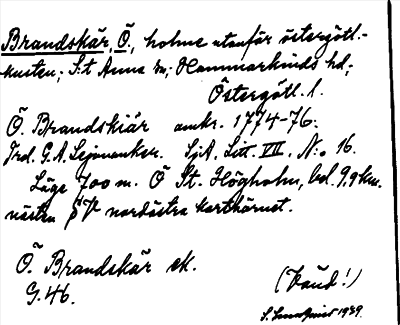 Brandskär, Ö., holme utanför östergötl.-
kusten; S:t Anna sn; Hammarkinds hd;
Östergötl. l.
Ö. Brandskiär omkr. 1774-76.
Ind. G. A. SjA. Litt. VII. N:o 16.
Läge 700 m. Ö St. Högholm, bel. 9,9 km.
nästan SV nordöstra karthörnet.
Ö. Brandskär ek.
G. 46.
(Båud!)
S. 1939.